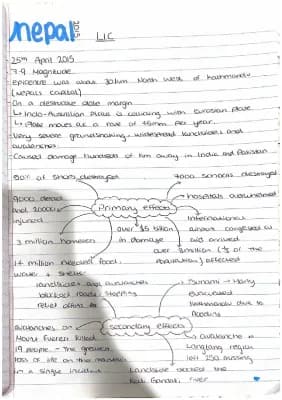 nepal 2015
LIC
25th April 2015
7.9 Magnitude
Epicentre was about 80km North West of Kathmandu
(Nepal's Capital)
On a destructive plate margin
↳ Indo-Australian Plate is colliding with Eurasian Plate
↳ Plate moves at a rate of 45mm per year.
Very severe groundshaking, widespread landslides and
avalanches.
Caused damage hundreds of km away in India and Pakistan
50% of shops destroyed
7000 schools destroyed
9000 dead
and 20000
injured
Primary effects
hospitals overwhelmed
3 million homeless
over $5 billion
in damage
International
airport congested as
aid arrived
over 8 million (1/3 of the
population) affected
1.4 million needed food,
water & shelter
landslides and avalanches
blocked roads, stopping
relief efforts
Many
evacuated
Kathmandu due to
flooding
secondary effects
avalanches on
Mount Everest killed
19 people - The greatest
loss of life on the mountain
in a single incident
avalanche
Langtang region
left 250 missing
Landslide blocked the
Kali Gandaki River